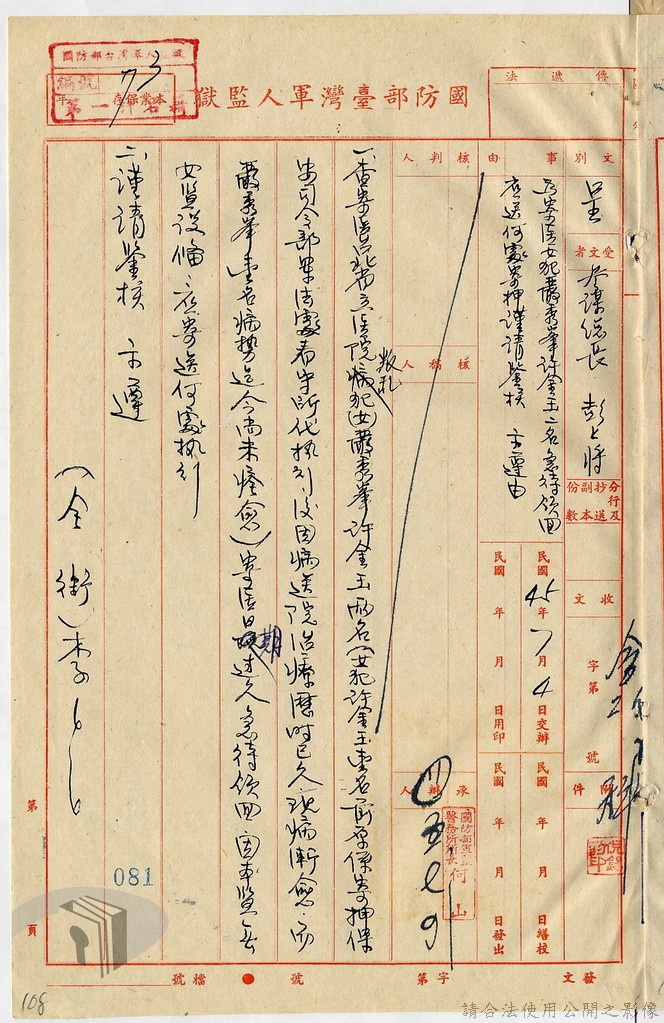 國防部臺灣軍人監獄
法遞傳
國防部台灣軍人監獄
編號
773
文別
呈
受文者
參謀總長 彭上將
事由
為寄醫女犯嚴秀峯許金玉二名急待領回
應送何處寄押謹請鑒核 示遵由
分行及抄送副本份數
收文
字第 號
附件
民國45年7月4日交辦
民國 年 月 日用印
民國 年 月 日繕校
民國 年 月 日發出
核判人
核稿人
承辦人
國防部軍監
醫務所所長
何 山
一、查寄醫台北省立醫院叛亂病犯(女)嚴秀峯許金玉兩名(女犯許金玉壹名前原係寄押保
安司令部軍法處看守所代執行)後因病送院治療歷時已久現病漸愈.而
嚴秀峯壹名病勢迄今尚未痊愈)寄醫日期過久急待領回因本監無
女監設備,應寄送何處執行
二、謹請鑒核 示遵
(全銜)李
第 頁
081
檔號
號
字第
發文
108
請合法使用公開之影像